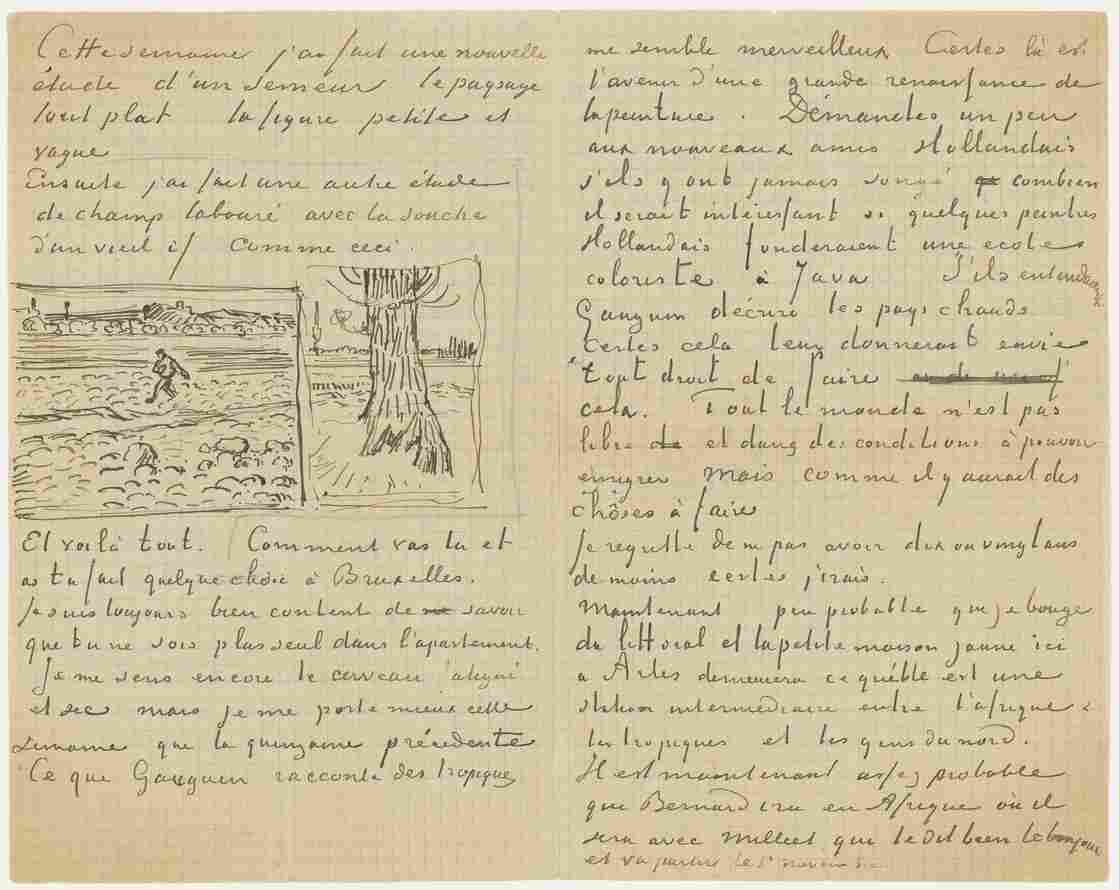 Cette semaine j'ai fait une nouvelle
étude d'un semeur le paysage
tout plat la figure petite et
vague
Ensuite j'ai fait une autre étude
de champ labouré avec la souche
d'un vieil if Comme ceci.
Et voilà tout. Comment vas tu et
as tu fait quelque chose à Bruxelles.
Je suis toujours bien content de ne savoir
que tu ne sois plus seul dans l'apartement.
Je me sens encore le cerveau
et sec mais je me porte mieux cette
semaine que la quinzaine précédente
Ce que Gauguin raconte des tropiques
me semble merveilleux Certes là est
l'avenir d'une grande renaissance de
la peinture. Démandes un peu
aux nouveaux amis Hollandais
s'ils y ont jamais songé combien
il serait intéressant si quelques peintres
Hollandais fonderaient une ecole
coloriste à Java S'ils entendaient
Gauguin décrire les pays chauds
certes cela leur donnerait envie
tout droit de faire
cela. Tout le monde n'est pas
libre de et dans des conditions à pouvoir
émigrer Mais comme il y aurait des
chôses à faire
Je regrette de ne pas avoir dix ou vingt ans
de moins certes j'irais.
Maintenant peu probable que je bouge
du littoral et la petite maison jaune ici
à Arles demeurera ce qu'elle est une
station intermédiaire entre l'afrique &
les tropiques et les gens du nord.
Il est maintenant assez probable
que Bernard ira en Afrique où il
sera avec Milliet que te dit bien le bonjour
et va partir le 1er novembre